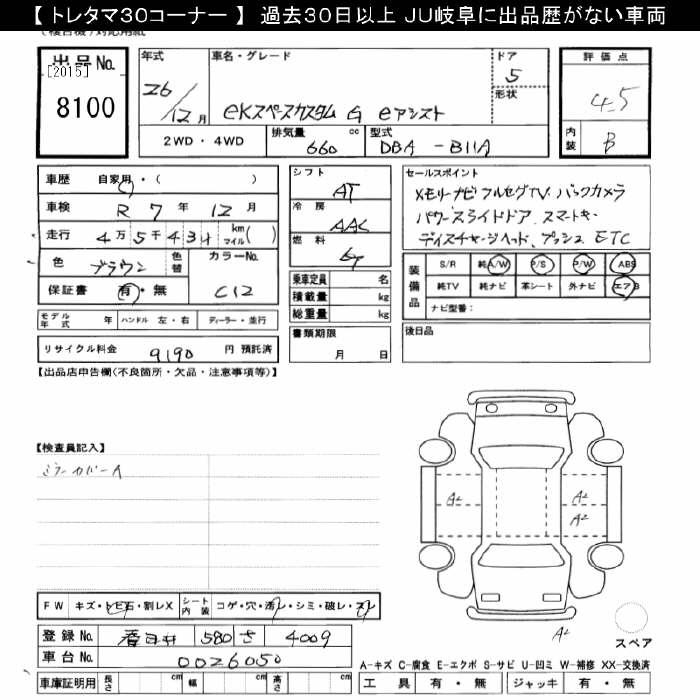 【 トレタマ30コーナー 】 過去30日以上 JU岐阜に出品歴がない車両
出品No.
[2015]
8100
年式
26/12月
車名・グレード
eKスペースカスタム G eアシスト
ドア
5
形状
2WD・4WD
排気量
660
cc
型式
DBA - B11A
評価点
4.5
内装
B
車歴 自家用・( )
車検 R 7 年 12 月
走行 4万 5千 4 3 km マイル( )
色 ブラウン 色替
カラーNo.
C12
保証書 有・無
モデル年式 年 ハンドル 左・右 ディーラー・並行
リサイクル料金 9190 円 預託済
シフト
AT
冷房
AAC
燃料
乗車定員 名
積載量 kg
総重量 kg
書類期限
月 日
セールスポイント
メモリーナビ フルセグTV バックカメラ
パワースライドドア スマートキー
ディスチャージヘッド プッシュ ETC
装備品
S/R 純A/W P/S P/W ABS
純TV 純ナビ 革シート 外ナビ エアB
ナビ型番:
後日品
【出品店申告欄(不良箇所・欠品・注意事項等)】
【検査員記入】
ミラーカバーA
A2
A2
A2
A2
スペア
FW キズ・トビ石・割レX シート内装 コゲ・穴・汚レ・シミ・破レ・スレ
登録No. 春日井 580 さ 4009
車台No. 0026050
車庫証明用 長さ cm 幅 cm 高さ cm
A-キズ C-腐食 E-エクボ S-サビ U-凹ミ W-補修 XX-交換済
工具 有・無 ジャッキ 有・無